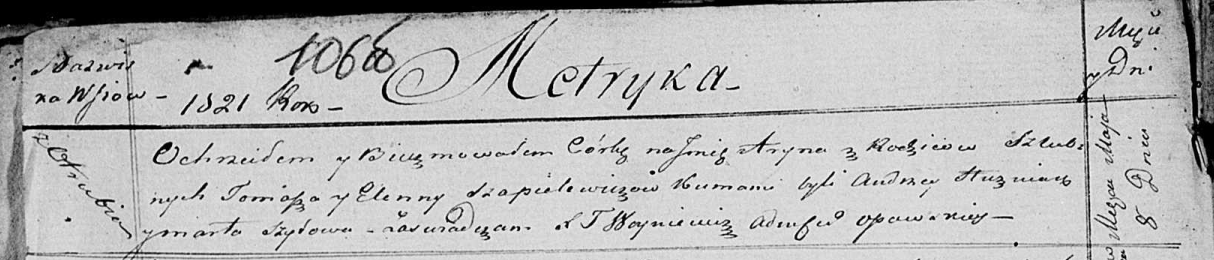 Nazwis
ka Wsiow -
1821 Rok -
1066
Metryka -
Mcy
y Dni
Ochrzciłem y Bierzmowałem Córkę na Jmię Aryna z Rodziców Szlub:
nych Tomasza y Elenny Szapielewiczów Kumami byli Andrzey
y Marta Szyłowa - zaswiadczam X T Woyniewicz
Miesąca Maja
8 Dnia